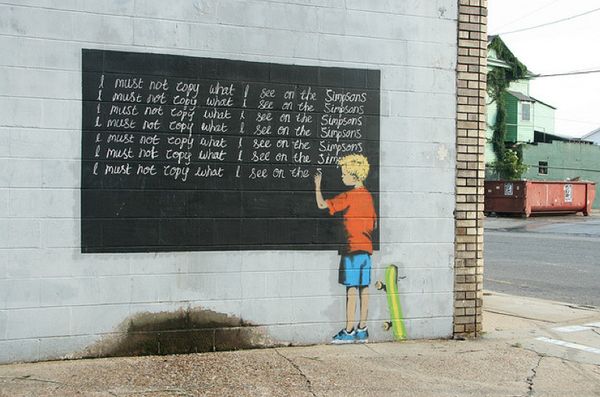 I must not copy what I see on the Simpsons
I must not copy what I see on the Simpsons
I must not copy what I see on the Simpsons
I must not copy what I see on the Simpsons
I must not copy what I see on the Simpsons
I must not copy what I see on the Simpsons
I must not copy what I see on the Sim
I must not copy what I see on the S